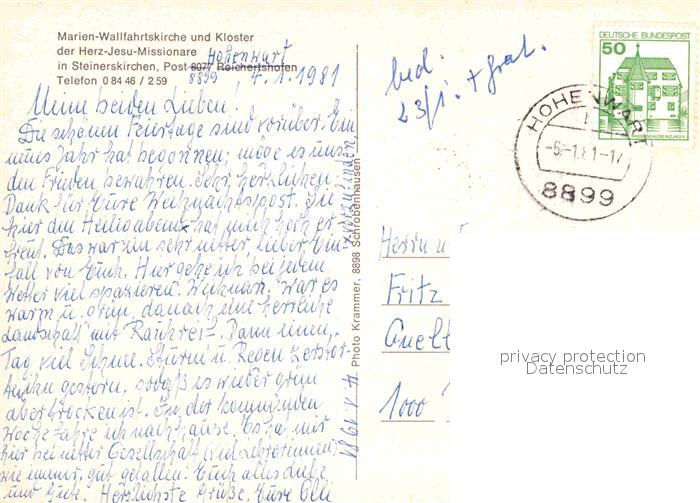 Marien-Wallfahrtskirche und Kloster
der Herz-Jesu-Missionare
Hohenwart
in Steinerskirchen, Post 8077 Reichertshofen
8899
Telefon 0 84 46 / 2 59
4.1.1981
Meine beiden Lieben!
Die schönen Feiertage sind vorüber. Ein
neues Jahr hat begonnen; möge es uns
den Frieden bewahren. Sehr herzlichen
Dank für Eure Weihnachtspost. Sie
hier den Heiligabend hat mich hoch er-
freut. Das war ein sehr netter, lieber Ein-
fall von Euch. Hier gehe ich bei jedem
Wetter viel spazieren. Weihnan. war es
warm u. grün, danach eine herrliche
Landschaft mit Rauhreif. Dann einen
Tag viel Schnee. Sturm u. Regen zerstör-
ten ihn gestern, sodaß es wieder grün
aber trocken ist. In der kommenden
Woche fahre ich nach Hause. Es hat mir
hier bei netter Gesellschaft (viel Lehrerinnen)
wie immer, gut gefallen. Euch alles Liebe
und Gute. Herzlichste Grüße, Eure Elli
x vorzufinden
Photo Krammer, 8898 Schrobenhausen
4.1.1981
23/1. + Grat.
DEUTSCHE BUNDESPOST
50
WASSERSCHLOSS INZLINGEN
HOHENWART
8899
Herrn u
Fritz
1000
privacy protection
Datenschutz